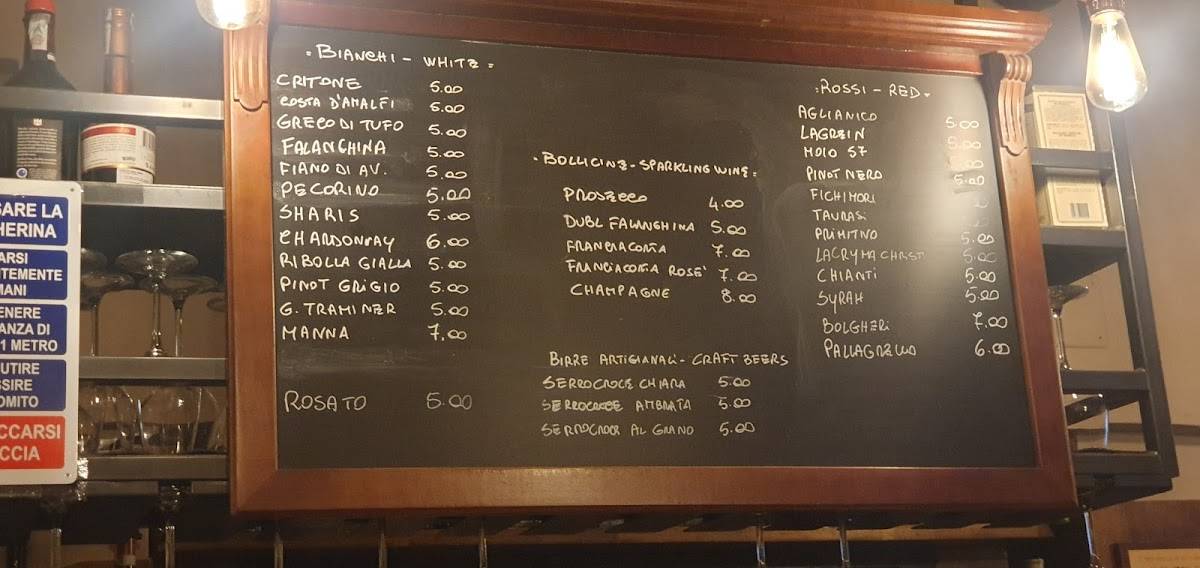 • BIANCHI - WHITE •
CRITONE 5.00
COSTA D'AMALFI 5.00
GRECO DI TUFO 5.00
FALANGHINA 5.00
FIANO DI AV. 5.00
PECORINO 5.00
SHARIS 5.00
CHARDONNAY 6.00
RIBOLLA GIALLA 5.00
PINOT GRIGIO 5.00
G. TRAMINER 5.00
MANNA 7.00
ROSATO 5.00
• BOLLICINE - SPARKLING WINE •
PROSECCO 4.00
DUBL FALANGHINA 5.00
FRANCIACORTA 7.00
FRANCIACORTA ROSE' 7.00
CHAMPAGNE 8.00
BIRRE ARTIGIANALI - CRAFT BEERS
SERROCROCE CHIARA 5.00
SERROCROCE AMBRATA 5.00
SERROCROCE AL GRANO 5.00
• ROSSI - RED •
AGLIANICO 5.00
LAGREIN 5.00
MOIO 57
PINOT NERO 5.00
FICHIMORI
TAURASI
PRIMITIVO 5.00
LACRYMA CHRISTI 5.00
CHIANTI 5.00
SYRAH 5.00
BOLGHERI 7.00
PALLAGRELLO 6.00
SARE LA
HERINA
ARSI
NTEMENTE
MANI
ENERE
ANZA DI
1 METRO
UTIRE
SSIRE
OMITO
CCARSI
CCIA